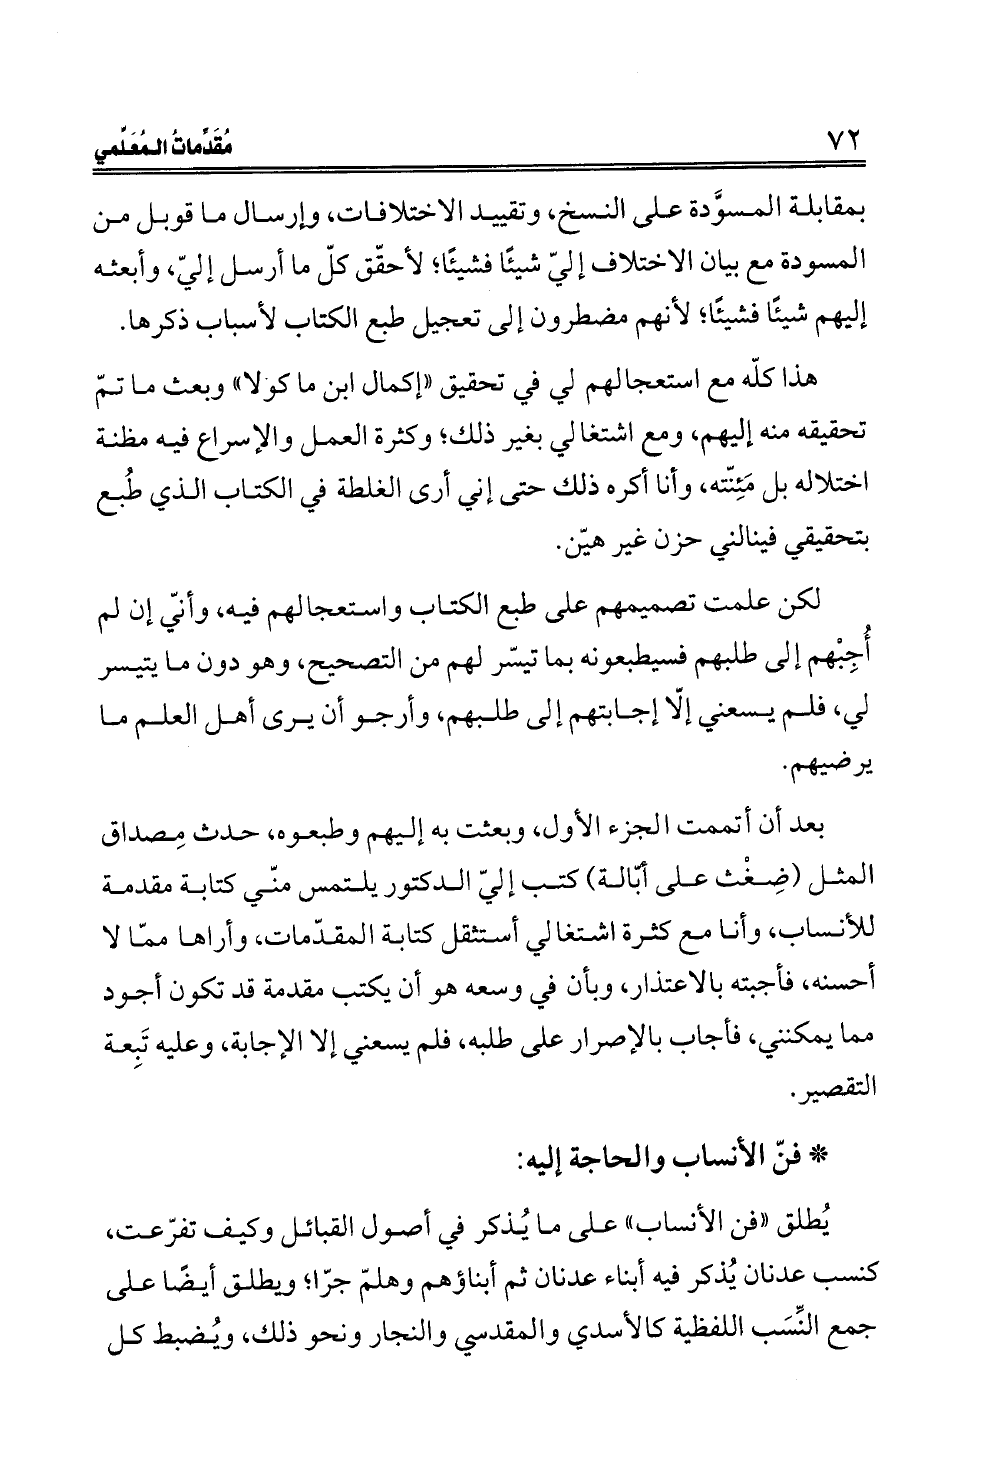 ٧٢
مُقَدِّمَاتُ المُعَلِّمي
بمقابلة المسوَّدة على النسخ، وتقييد الاختلافات، وإرسال ما قوبل من
المسودة مع بيان الاختلاف إليّ شيئًا فشيئًا؛ لأحقّق كلّ ما أرسل إليّ، وأبعثه
إليهم شيئًا فشيئًا؛ لأنهم مضطرون إلى تعجيل طبع الكتاب لأسباب ذكرها.
هذا كلّه مع استعجالهم لي في تحقيق «إكمال ابن ماكولا» وبعث ما تمّ
تحقيقه منه إليهم، ومع اشتغالي بغير ذلك؛ وكثرة العمل والإسراع فيه مظنة
اختلاله بل مَئِنّته، وأنا أكره ذلك حتى إني أرى الغلطة في الكتاب الذي طُبع
بتحقيقي فينالني حزن غير هيّن.
لكن علمت تصميمهم على طبع الكتاب واستعجالهم فيه، وأنّي إن لم
أُجِبْهم إلى طلبهم فسيطبعونه بما تيسّر لهم من التصحيح، وهو دون ما يتيسر
لي، فلم يسعني إلّا إجابتهم إلى طلبهم، وأرجو أن يرى أهل العلم ما
يرضيهم.
بعد أن أتممت الجزء الأول، وبعثت به إليهم وطبعوه، حدث مِصداق
المثل (ضِغْث على أبّالة) كتب إليّ الدكتور يلتمس منّي كتابة مقدمة
للأنساب، وأنا مع كثرة اشتغالي أستثقل كتابة المقدّمات، وأراها ممّا لا
أحسنه، فأجبته بالاعتذار، وبأن في وسعه هو أن يكتب مقدمة قد تكون أجود
مما يمكنني، فأجاب بالإصرار على طلبه، فلم يسعني إلا الإجابة، وعليه تَبِعة
التقصير.
* فنّ الأنساب والحاجة إليه:
يُطلق «فن الأنساب» على ما يُذكر في أصول القبائل وكيف تفرّعت،
كنسب عدنان يُذكر فيه أبناء عدنان ثم أبناؤهم وهلمّ جرّا؛ ويطلق أيضًا على
جمع النِّسَب اللفظية كالأسدي والمقدسي والنجار ونحو ذلك، ويُضبط كل